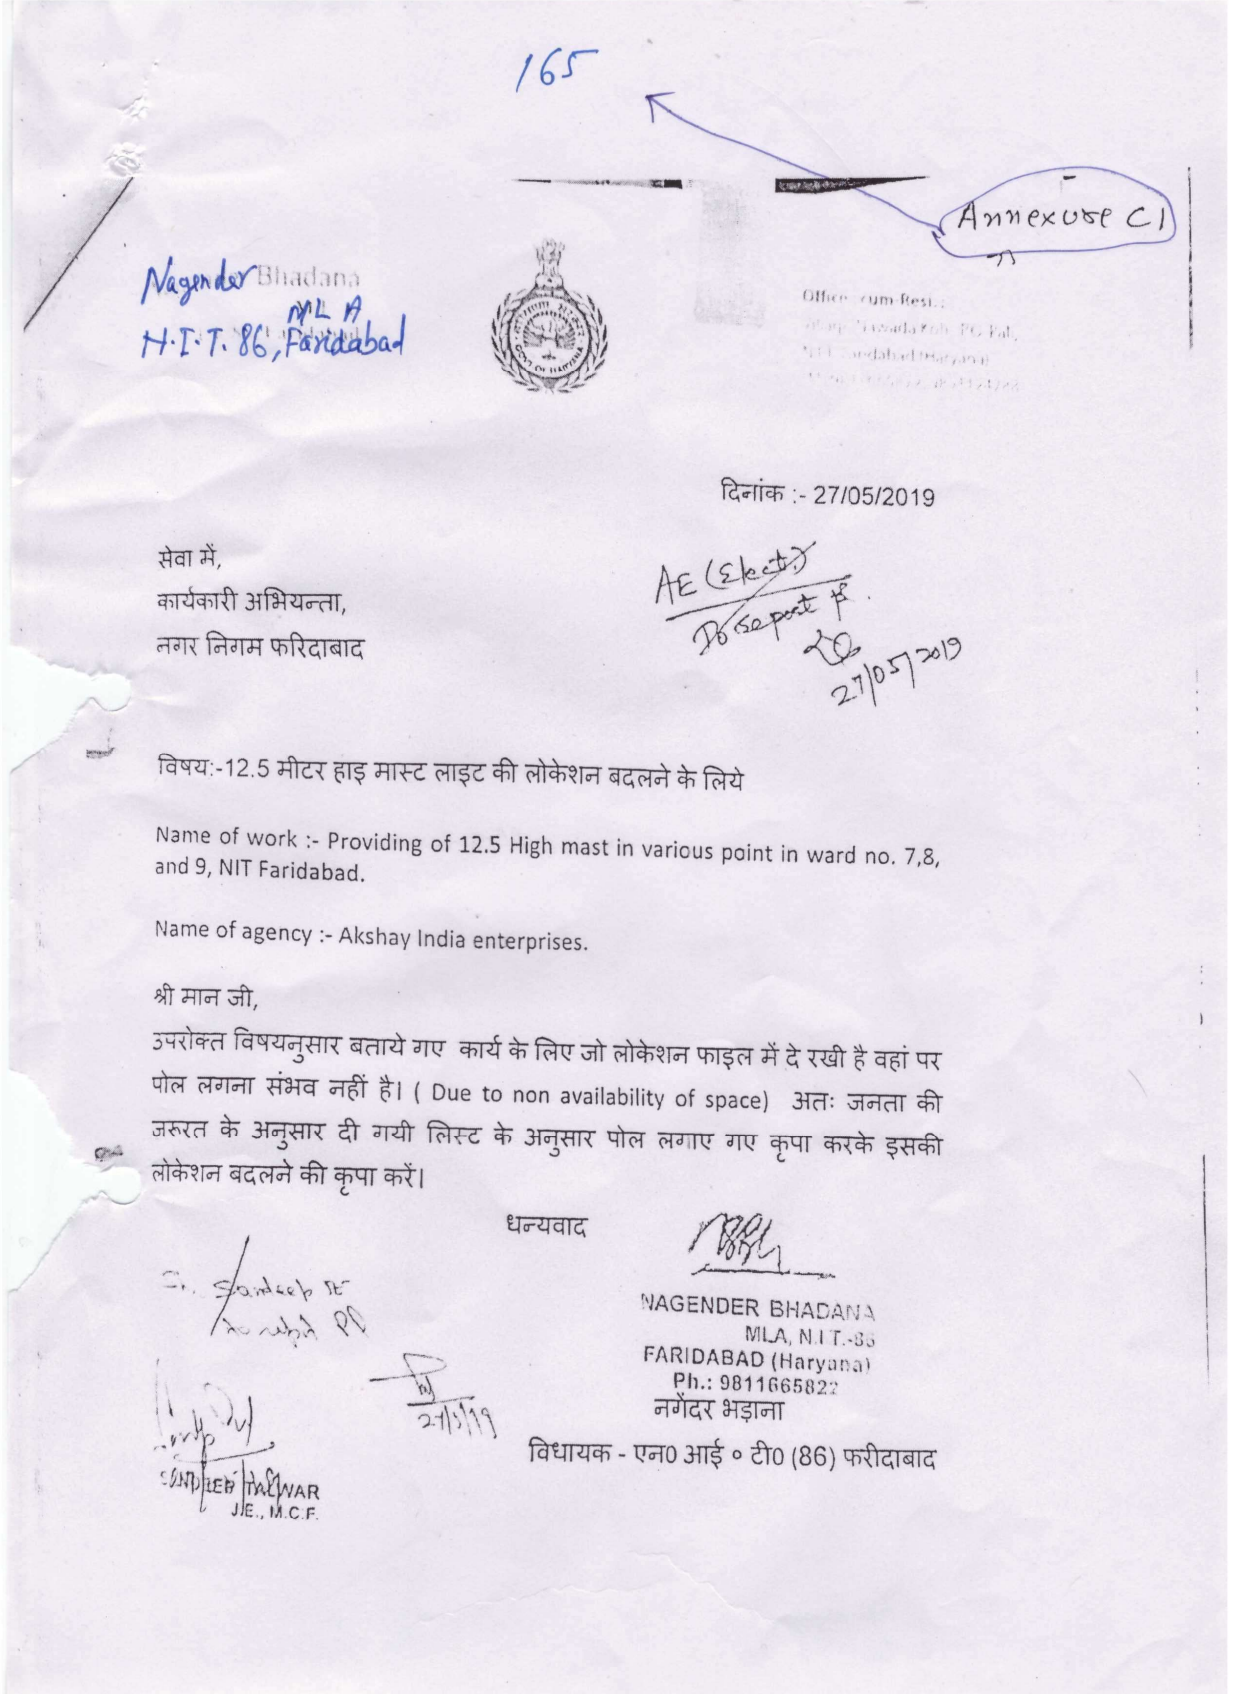 165
Annexure C1
Nagender Bhadana
MLA
N.I.T. 86, Faridabad
GOVT OF HARYANA
Office cum-Resi.:
दिनांक :- 27/05/2019
सेवा में,
कार्यकारी अभियन्ता,
नगर निगम फरिदाबाद
AE (Elect.)
Do report pl.
27/05/2019
विषय:-12.5 मीटर हाइ मास्ट लाइट की लोकेशन बदलने के लिये
Name of work :- Providing of 12.5 High mast in various point in ward no. 7,8,
and 9, NIT Faridabad.
Name of agency :- Akshay India enterprises.
श्री मान जी,
उपरोक्त विषयनुसार बताये गए कार्य के लिए जो लोकेशन फाइल में दे रखी है वहां पर
पोल लगना संभव नहीं है। ( Due to non availability of space) अतः जनता की
जरूरत के अनुसार दी गयी लिस्ट के अनुसार पोल लगाए गए कृपा करके इसकी
लोकेशन बदलने की कृपा करें।
धन्यवाद
Sandeep JE
NAGENDER BHADANA
MLA, N.I.T.-86
FARIDABAD (Haryana)
Ph.: 9811665822
नगेंदर भड़ाना
27/5/19
विधायक - एन0 आई ० टी0 (86) फरीदाबाद
J.E., M.C.F.